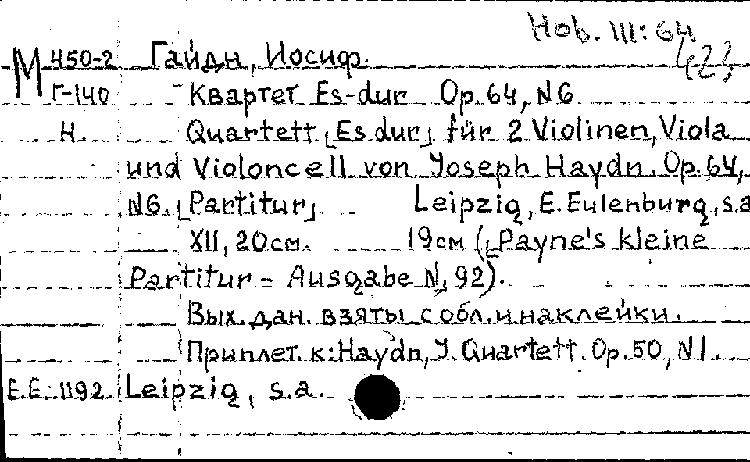 Hob. III: 64
М 450-2 Гайдн, Иосиф.
Г-140 Квартет Es-dur Op. 64, N6
Н. Quartett [Es dur] für 2 Violinen, Viola
und Violoncell von Joseph Haydn. Op. 64,
N6. [Partitur] Leipzig, E. Eulenburg, s.a
XII, 20см. 19см ([Payne's kleine
Partitur - Ausgabe N, 92).
Вых. дан. взяты с обл. и наклейки.
Приплет. к: Haydn, J. Quartett. Op. 50, N1.
E.E. 1192 Leipzig, s.a.